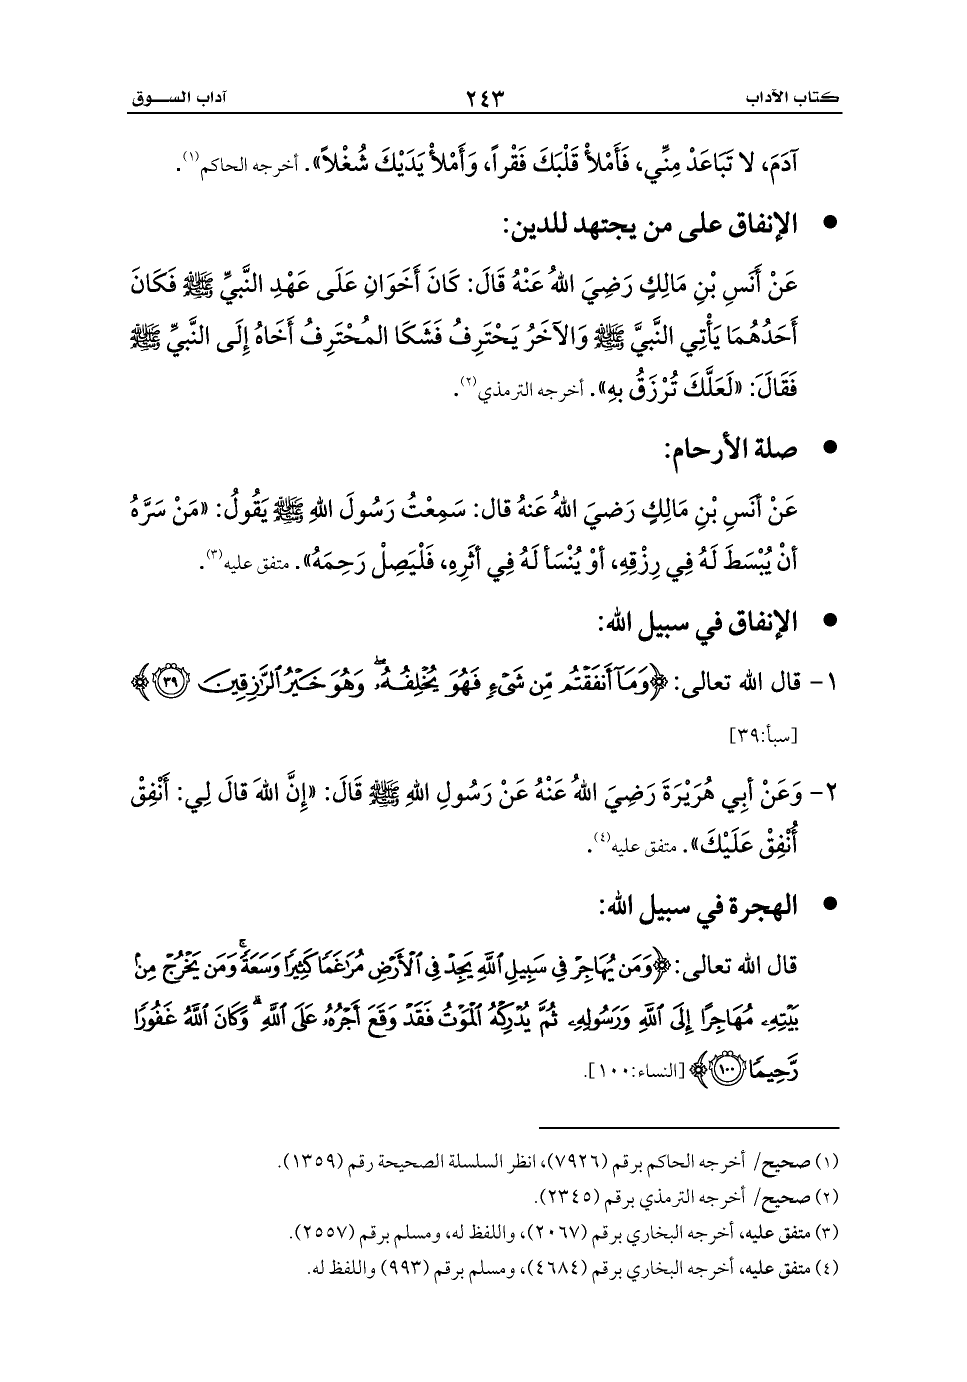 كتاب الآداب ٢٤٣ آداب الســـوق
آدَمَ، لا تَبَاعَدْ مِنِّي، فَأَمْلأْ قَلْبَكَ فَقْراً، وَأَمْلأْ يَدَيْكَ شُغْلاً». أخرجه الحاكم(١).
● الإنفاق على من يجتهد للدين:
عَنْ أَنَسِ بْنِ مَالِكٍ رَضِيَ اللهُ عَنْهُ قَالَ: كَانَ أَخَوَانِ عَلَى عَهْدِ النَّبِيِّ ﷺ فَكَانَ
أَحَدُهُمَا يَأْتِي النَّبِيَّ ﷺ وَالآخَرُ يَحْتَرِفُ فَشَكَا المُحْتَرِفُ أَخَاهُ إِلَى النَّبِيِّ ﷺ
فَقَالَ: «لَعَلَّكَ تُرْزَقُ بِهِ». أخرجه الترمذي(٢).
● صلة الأرحام:
عَنْ أَنَسِ بْنِ مَالِكٍ رَضِيَ اللهُ عَنهُ قال: سَمِعْتُ رَسُولَ اللهِ ﷺ يَقُولُ: «مَنْ سَرَّهُ
أنْ يُبْسَطَ لَهُ فِي رِزْقِهِ، أوْ يُنْسَأ لَهُ فِي أثَرِهِ، فَلْيَصِلْ رَحِمَهُ». متفق عليه(٣).
● الإنفاق في سبيل الله:
١- قال الله تعالى: ﴿وَمَآ أَنفَقْتُم مِّن شَىْءٍ فَهُوَ يُخْلِفُهُۥ ۖ وَهُوَ خَيْرُ ٱلرَّٰزِقِينَ ٣٩﴾
[سبأ:٣٩]
٢- وَعَنْ أَبِي هُرَيْرَةَ رَضِيَ اللهُ عَنْهُ عَنْ رَسُولِ اللهِ ﷺ قَالَ: «إِنَّ اللهَ قالَ لِي: أَنْفِقْ
أُنْفِقْ عَلَيْكَ». متفق عليه(٤).
● الهجرة في سبيل الله:
قال الله تعالى: ﴿وَمَن يُهَاجِرْ فِي سَبِيلِ ٱللَّهِ يَجِدْ فِي ٱلْأَرْضِ مُرَٰغَمًا كَثِيرًا وَسَعَةً ۚ وَمَن يَخْرُجْ مِنۢ
بَيْتِهِۦ مُهَاجِرًا إِلَى ٱللَّهِ وَرَسُولِهِۦ ثُمَّ يُدْرِكْهُ ٱلْمَوْتُ فَقَدْ وَقَعَ أَجْرُهُۥ عَلَى ٱللَّهِ ۗ وَكَانَ ٱللَّهُ غَفُورًا
رَّحِيمًا ١٠٠﴾ [النساء:١٠٠].
(١) صحيح/ أخرجه الحاكم برقم (٧٩٢٦)، انظر السلسلة الصحيحة رقم (١٣٥٩).
(٢) صحيح/ أخرجه الترمذي برقم (٢٣٤٥).
(٣) متفق عليه، أخرجه البخاري برقم (٢٠٦٧)، واللفظ له، ومسلم برقم (٢٥٥٧).
(٤) متفق عليه، أخرجه البخاري برقم (٤٦٨٤)، ومسلم برقم (٩٩٣) واللفظ له.